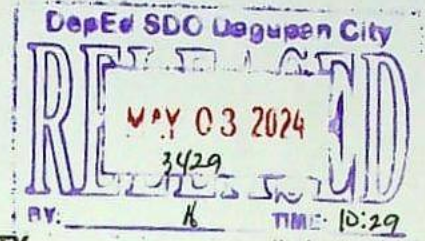 DepEd SDO Dagupan City
RELEASED
MAY 03 2024
3429
BY: TIME: 10:29